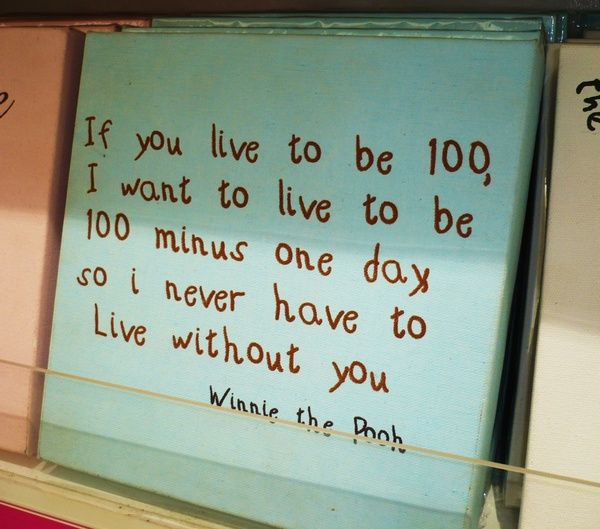 If you live to be 100,
I want to live to be
100 minus one day
so i never have to
Live without you
Winnie the Pooh
the